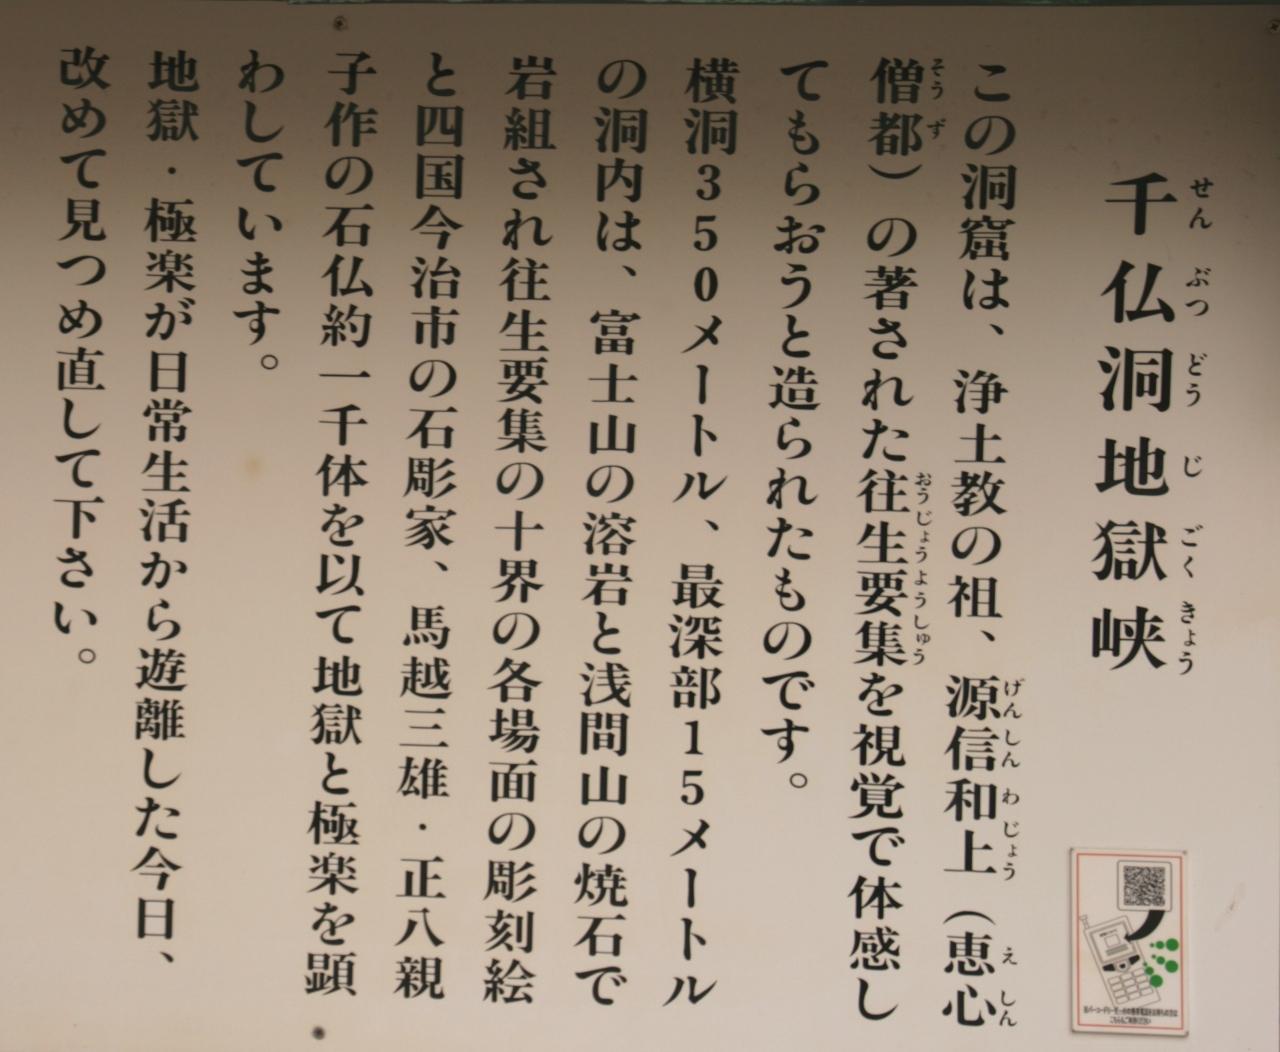 千仏洞地獄峡
せんぶつどうじごくきょう
この洞窟は、浄土教の祖、源信和上（恵心
げんしんわじょう
えしん
僧都）の著された往生要集を視覚で体感し
そうず
おうじょうようしゅう
てもらおうと造られたものです。
横洞350メートル、最深部15メートル
の洞内は、富士山の溶岩と浅間山の焼石で
岩組され往生要集の十界の各場面の彫刻絵
と四国今治市の石彫家、馬越三雄・正八親
子作の石仏約一千体を以て地獄と極楽を顕
わしています。
地獄・極楽が日常生活から遊離した今日、
改めて見つめ直して下さい。